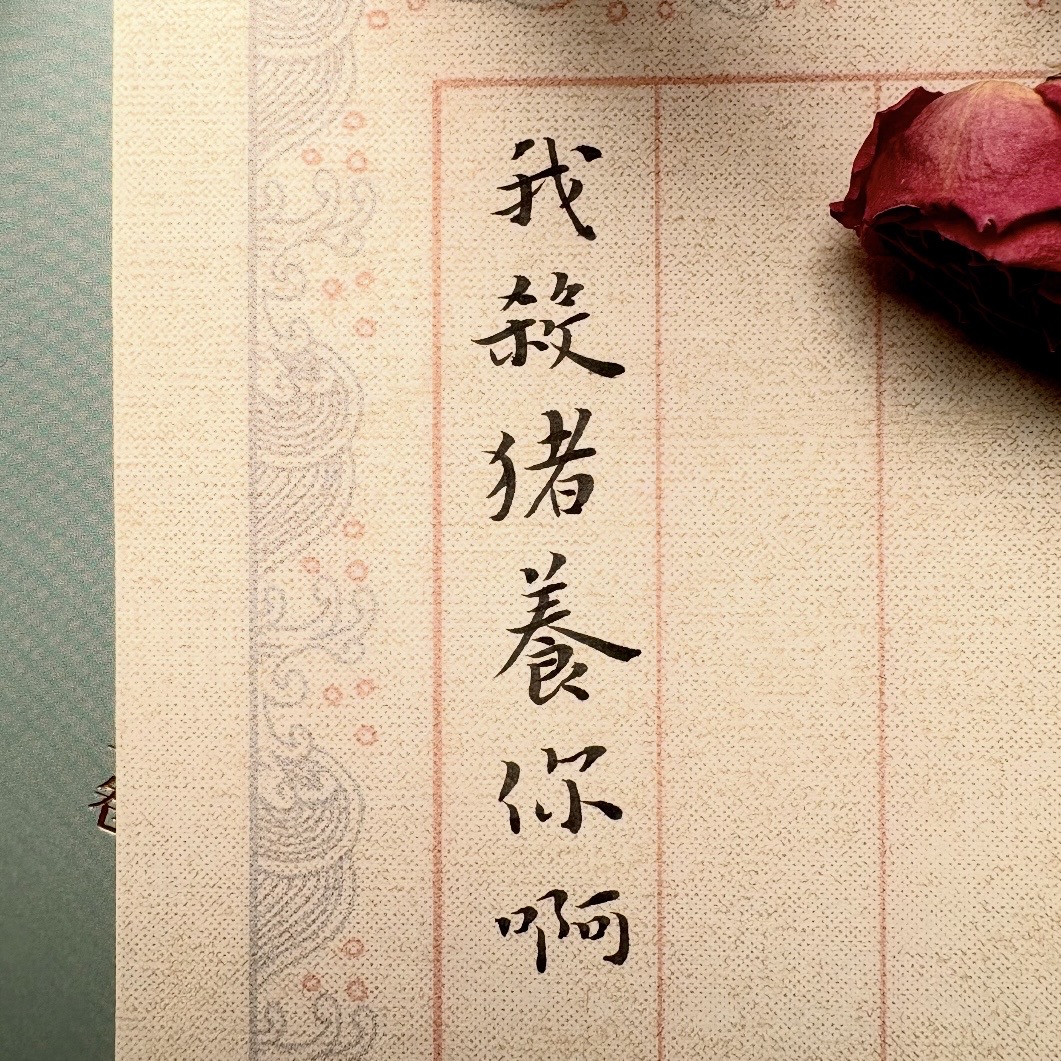 我殺猪養你啊